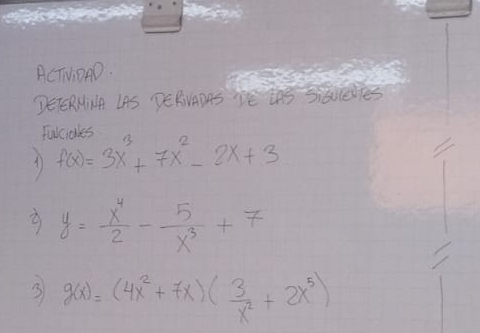 ACTIVIDAD.
DETERMINA LAS DERIVADAS DE LAS SIGUIENTES
FUNCIONES.
1) f(x) = 3x³ + 7x² - 2x + 3
2) y = x⁴/2 - 5/x³ + 7
3) g(x) = (4x² + 7x)(3/x² + 2x⁵)